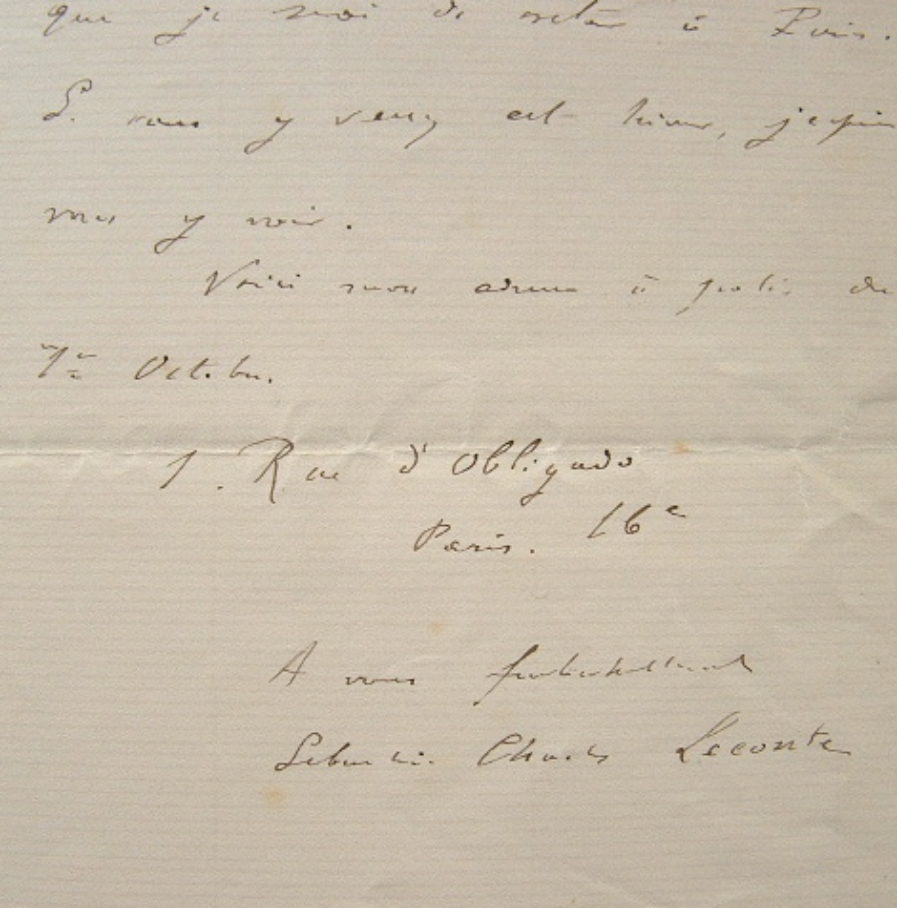 que je serai de retour à Paris.
Si vous y venez cet hiver, j'espère
vous y voir.
Voici mon adresse à partir du
1er Octobre.
1. Rue d'Obligado
Paris. 16e
A vous
Sébastien Charles Leconte